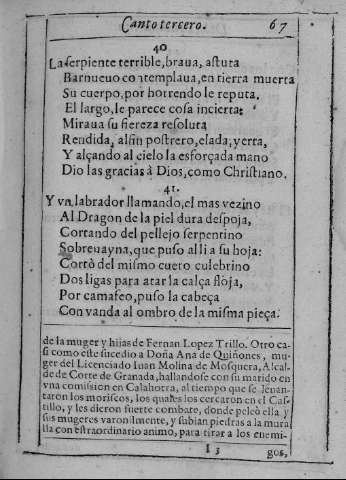 Canto tercero. 67
40
La serpiente terrible, braua, astuta
Barnueuo contemplaua, en tierra muerta
Su cuerpo, por horrendo le reputa.
El largo, le parece cosa incierta:
Miraua su fiereza resoluta
Rendida, al fin postrero, elada, yerta,
Y alçando al cielo la esforçada mano
Dio las gracias à Dios, como Christiano.
41.
Y vn labrador llamando, el mas vezino
Al Dragon de la piel dura despoja,
Cortando del pellejo serpentino
Sobreuayna, que puso alli a su hoja:
Cortò del mismo cuero culebrino
Dos ligas para atar la calça floja,
Por camafeo, puso la cabeça
Con vanda al ombro de la misma pieça.
de la muger y hijas de Fernan Lopez Trillo. Otro ca-
si como este sucedio a Doña Ana de Quiñones, mu-
ger del Licenciado Iuan Molina de Mosquera, Alcal-
de de Corte de Granada, hallandose con su marido en
vna comission en Calahorra, al tiempo que se leuan-
taron los moriscos, los quales los cercaron en el Cas-
tillo, y les dieron fuerte combate, donde peleò ella y
sus mugeres varonilmente, y subian piedras a la mura
lla con estraordinario animo, para tirar a los enemi-
I 3 gos,